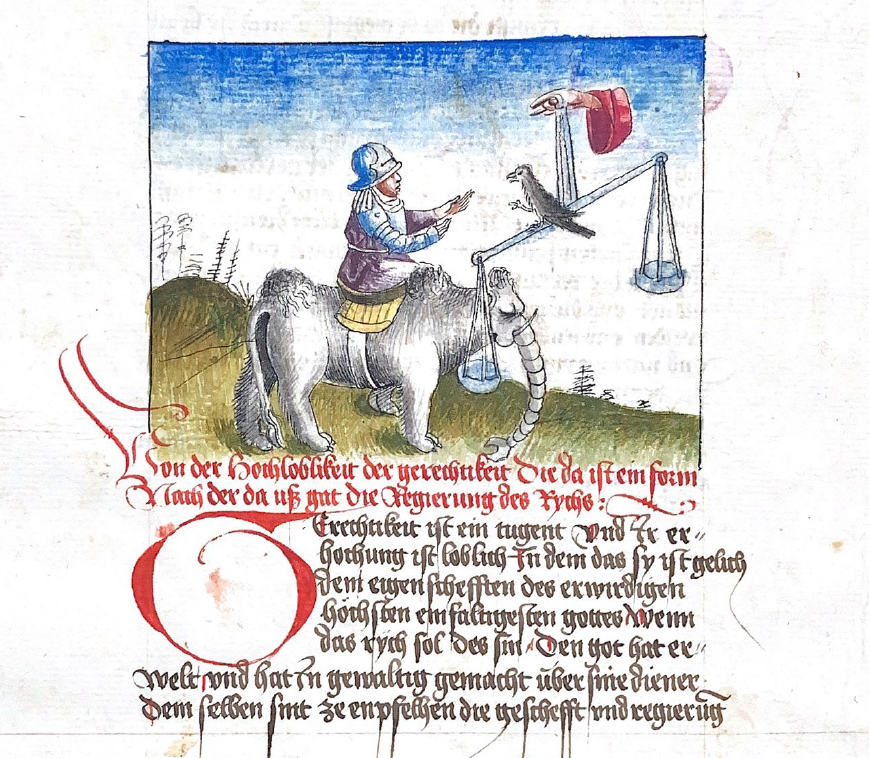 Von der Hochloblikeit der gerechtikeit Die da ist ein form
Nach der da uß gat die Regierung des Rychs :
Gerechtikeit ist ein tugent Vnd Ir er-
hochung ist loblich In dem das sy ist gelich
dem eigenschefften des erwirdigen
höchsten einfaltigesten gottes Wenn
das rych sol des sin Den got hat er-
welt vnd hat In gewaltig gemacht über sine diener
Dem selben sint ze enpfelhen die geschefft vnd regierūg